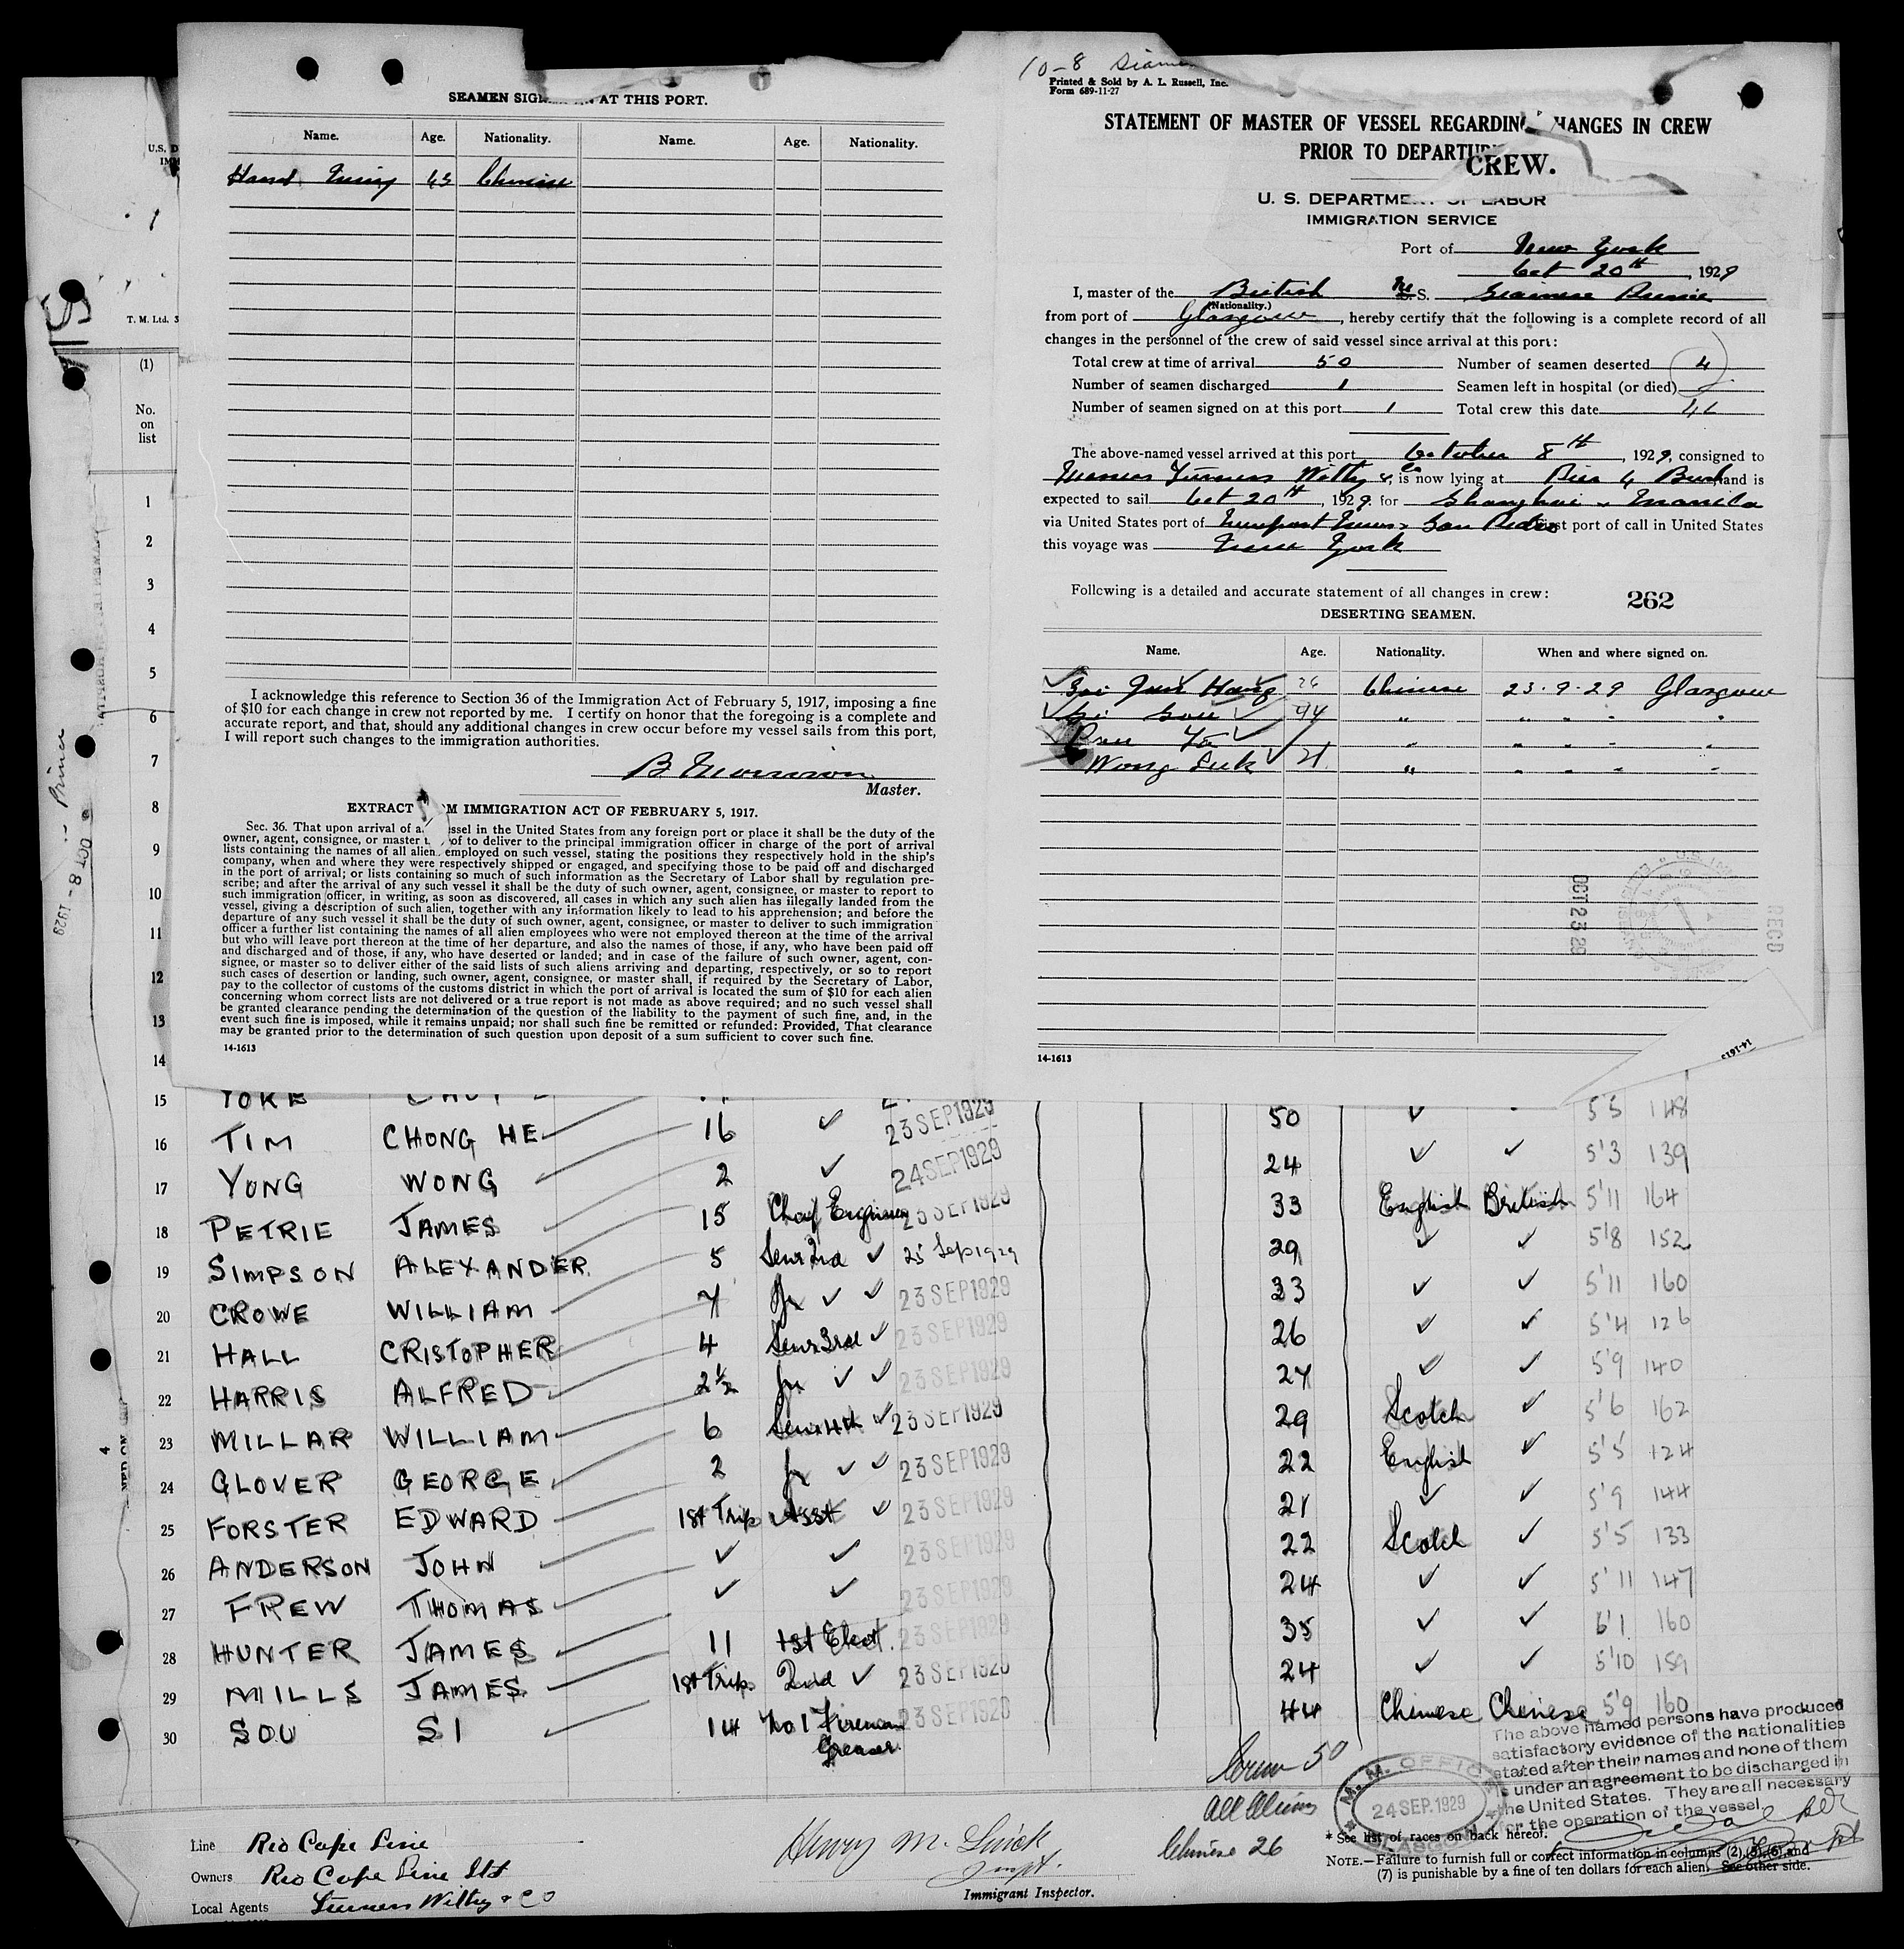 SEAMEN SIG AT THIS PORT.
Name. Age. Nationality. Name. Age. Nationality.
Chinese
I acknowledge this reference to Section 36 of the Immigration Act of February 5, 1917, imposing a fine
of $10 for each change in crew not reported by me. I certify on honor that the foregoing is a complete and
accurate report, and that, should any additional changes in crew occur before my vessel sails from this port,
I will report such changes to the immigration authorities.
Master.
EXTRACT M IMMIGRATION ACT OF FEBRUARY 5, 1917.
Sec. 36. That upon arrival of a essel in the United States from any foreign port or place it shall be the duty of the
owner, agent, consignee, or master t of to deliver to the principal immigration officer in charge of the port of arrival
lists containing the names of all alien employed on such vessel, stating the positions they respectively hold in the ship's
company, when and where they were respectively shipped or engaged, and specifying those to be paid off and discharged
in the port of arrival; or lists containing so much of such information as the Secretary of Labor shall by regulation pre-
scribe; and after the arrival of any such vessel it shall be the duty of such owner, agent, consignee, or master to report to
such immigration officer, in writing, as soon as discovered, all cases in which any such alien has illegally landed from the
vessel, giving a description of such alien, together with any information likely to lead to his apprehension; and before the
departure of any such vessel it shall be the duty of such owner, agent, consignee, or master to deliver to such immigration
officer a further list containing the names of all alien employees who were not employed thereon at the time of the arrival
but who will leave port thereon at the time of her departure, and also the names of those, if any, who have been paid off
and discharged and of those, if any, who have deserted or landed; and in case of the failure of such owner, agent, con-
signee, or master so to deliver either of the said lists of such aliens arriving and departing, respectively, or so to report
such cases of desertion or landing, such owner, agent, consignee, or master shall, if required by the Secretary of Labor,
pay to the collector of customs of the customs district in which the port of arrival is located the sum of $10 for each alien
concerning whom correct lists are not delivered or a true report is not made as above required; and no such vessel shall
be granted clearance pending the determination of the question of the liability to the payment of such fine, and, in the
event such fine is imposed, while it remains unpaid; nor shall such fine be remitted or refunded: Provided, That clearance
may be granted prior to the determination of such question upon deposit of a sum sufficient to cover such fine.
14-1613
10-8
Printed & Sold by A. L. Russell, Inc.
Form 689-11-27
STATEMENT OF MASTER OF VESSEL REGARDING HANGES IN CREW
PRIOR TO DEPARTUR
CREW.
U. S. DEPARTME LABOR
IMMIGRATION SERVICE
Port of New York
Oct 20th, 1929
I, master of the British S. Siamese Prince
(Nationality.)
from port of Glasgow, hereby certify that the following is a complete record of all
changes in the personnel of the crew of said vessel since arrival at this port:
Total crew at time of arrival 50 Number of seamen deserted 4
Number of seamen discharged 1 Seamen left in hospital (or died)
Number of seamen signed on at this port 1 Total crew this date 46
The above-named vessel arrived at this port October 8th, 1929, consigned to
Messrs Furness Withy & Co is now lying at Pier 4 Bush and is
expected to sail Oct 20th, 1929 for Shanghai & Manila
via United States port of Newport News & San Pedro First port of call in United States
this voyage was New York
Following is a detailed and accurate statement of all changes in crew: 262
DESERTING SEAMEN.
Name. Age. Nationality. When and where signed on.
Hang 26 Chinese 23-9-29 Glasgow
44 " " " " "
" " " " "
Wong 21 " " " " "
OCT 23 29
RECD
14-1613
14-1613
T. M. Ltd. 3
(1)
No.
on
list
1
2
3
4
5
6
7
8
9
10
11
12
13
14
Prince
OCT - 8 1929
15 YOKE 55 148
16 TIM CHONG HE 16 ✓ 23 SEP 1929 50 ✓
17 YONG WONG 2 ✓ 24 SEP 1929 24 ✓ ✓ 5'3 139
18 PETRIE JAMES 15 Chief Engineer 23 SEP 1929 33 English British 5'11 164
19 SIMPSON ALEXANDER 5 Senr 2nd ✓ 25 Sep 1929 29 ✓ ✓ 5'8 152
20 CROWE WILLIAM 7 Jr ✓ ✓ 23 SEP 1929 33 ✓ ✓ 5'11 160
21 HALL CRISTOPHER 4 Senr 3rd ✓ 23 SEP 1929 26 ✓ ✓ 5'4 126
22 HARRIS ALFRED 2½ Jr ✓ ✓ 23 SEP 1929 24 ✓ ✓ 5'9 140
23 MILLAR WILLIAM 6 Senr 4th ✓ 23 SEP 1929 29 Scotch ✓ 5'6 162
24 GLOVER GEORGE 2 Jr ✓ ✓ 23 SEP 1929 22 English ✓ 5'5 124
25 FORSTER EDWARD 1st Trip Asst ✓ 23 SEP 1929 21 ✓ ✓ 5'9 144
26 ANDERSON JOHN ✓ ✓ 23 SEP 1929 22 Scotch ✓ 5'5 133
27 FREW THOMAS ✓ ✓ 23 SEP 1929 24 ✓ ✓ 5'11 147
28 HUNTER JAMES 11 1st Elect. 23 SEP 1929 35 ✓ ✓ 6'1 160
29 MILLS JAMES 1st Trip 2nd ✓ 23 SEP 1929 24 ✓ ✓ 5'10 159
30 SOU SI 14 No 1 Fireman 23 SEP 1929 44 Chinese Chinese 5'9 160
Greaser
The above named persons have produced
satisfactory evidence of the nationalities
stated after their names and none of them
is under an agreement to be discharged in
the United States. They are all necessary
for the operation of the vessel.
Crew 50
All Aliens
Chinese 26
M. M. OFFICE
24 SEP. 1929
GLASGOW
* See list of races on back hereof.
NOTE.—Failure to furnish full or correct information in columns (2), (5), (6) and
(7) is punishable by a fine of ten dollars for each alien. See other side.
Line Rio Cape Line
Owners Rio Cape Line Ltd
Local Agents Furness Withy & Co
Henry M.
Immigrant Inspector.